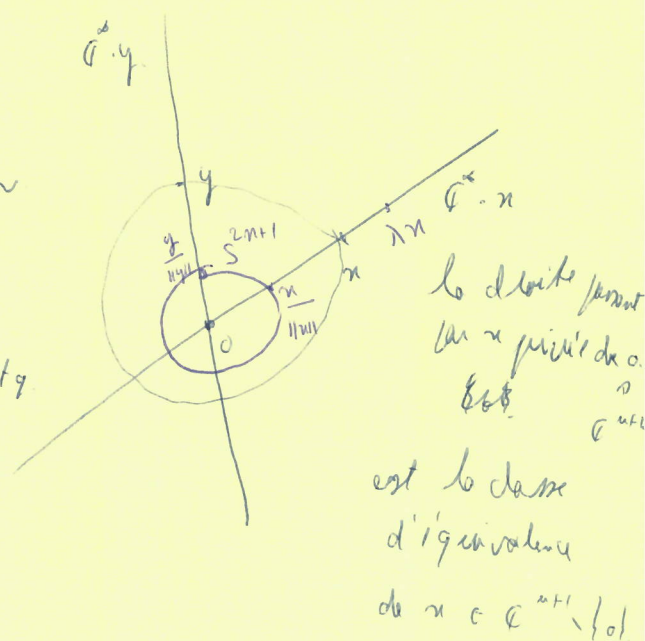 ℂ*.y
y
y/||y||
S^{2n+1}
ℂ*.x
λx
x
x/||x||
0
la droite passant
par x privée de 0.
tq
ℂ^{n+1}
est la classe
d'équivalence
de x ∈ ℂ^{n+1} \ {0}